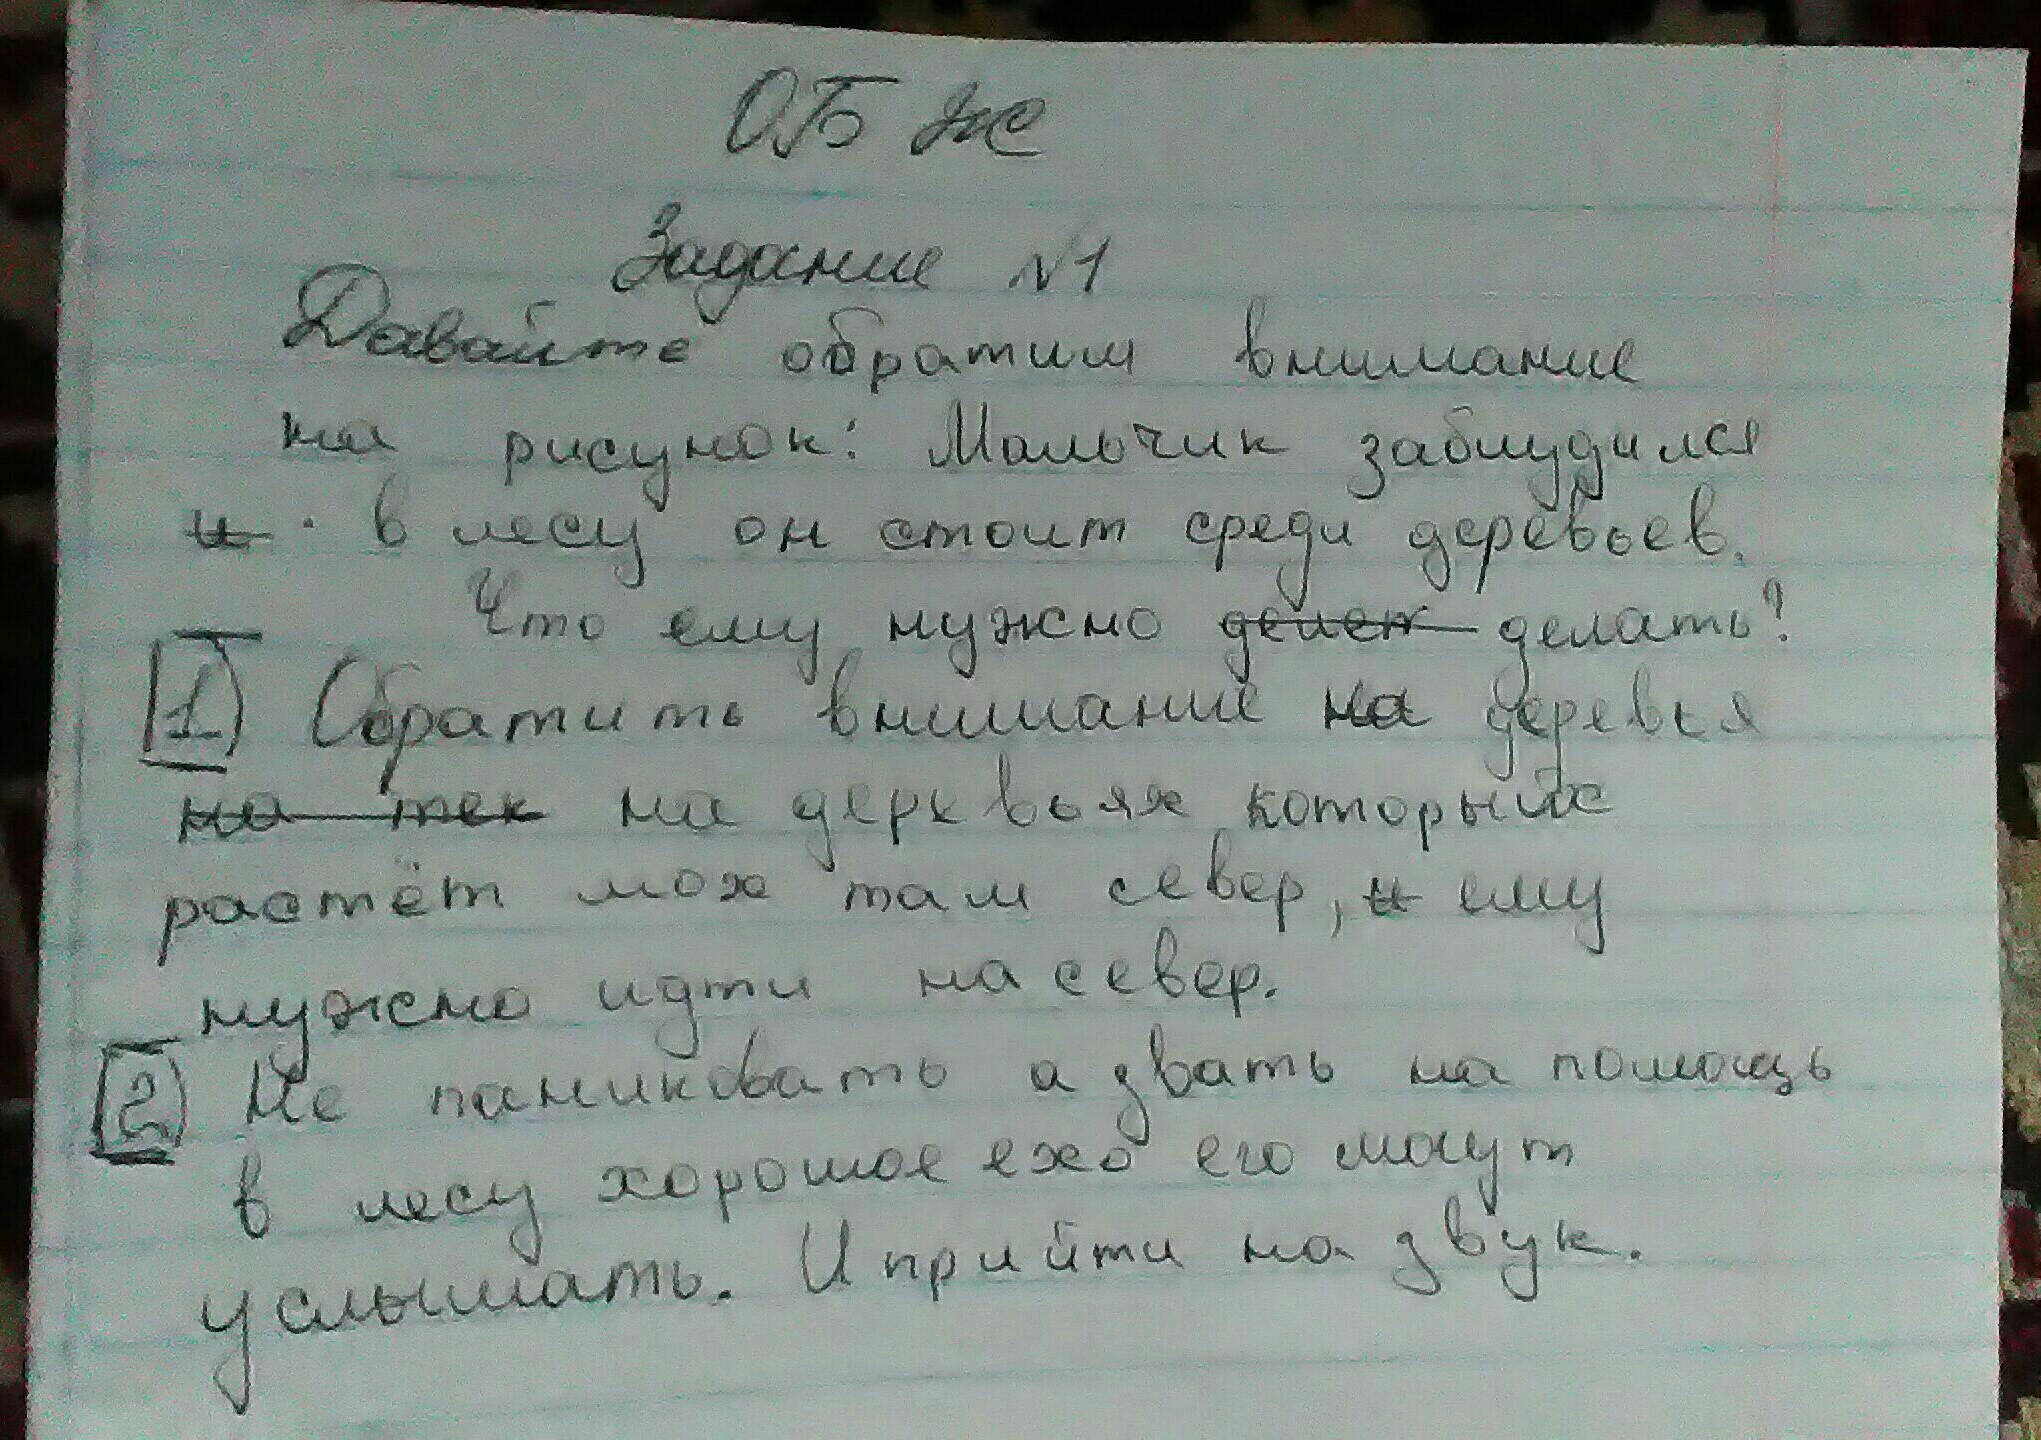 ОБЖ
Задание №1
Давайте обратим внимание
на рисунок: Мальчик заблудился
и в лесу он стоит среди деревьев.
Что ему нужно делат делать?
1) Обратить внимание на деревья
на тех на деревьях которых
растёт мох там север, и ему
нужно идти на север.
2) Не паниковать а звать на помощь
в лесу хорошое ехо его могут
услышать. И прийти на звук.